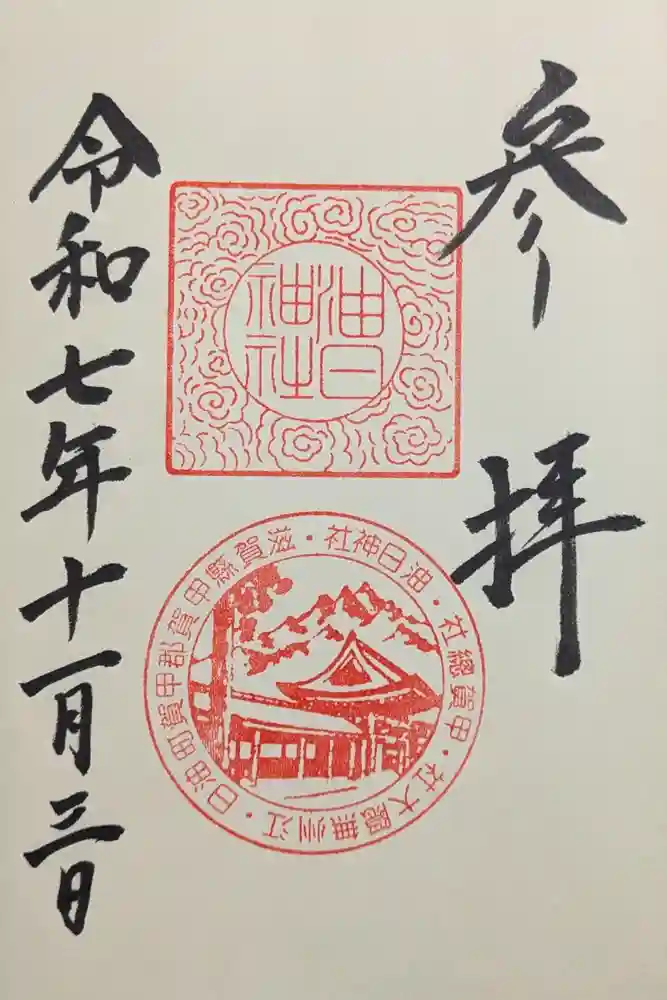 参拝
油日
神社
滋賀縣甲賀郡甲賀町油日・江州無隠大社・甲賀總社・油日神社・
令和七年十一月三日